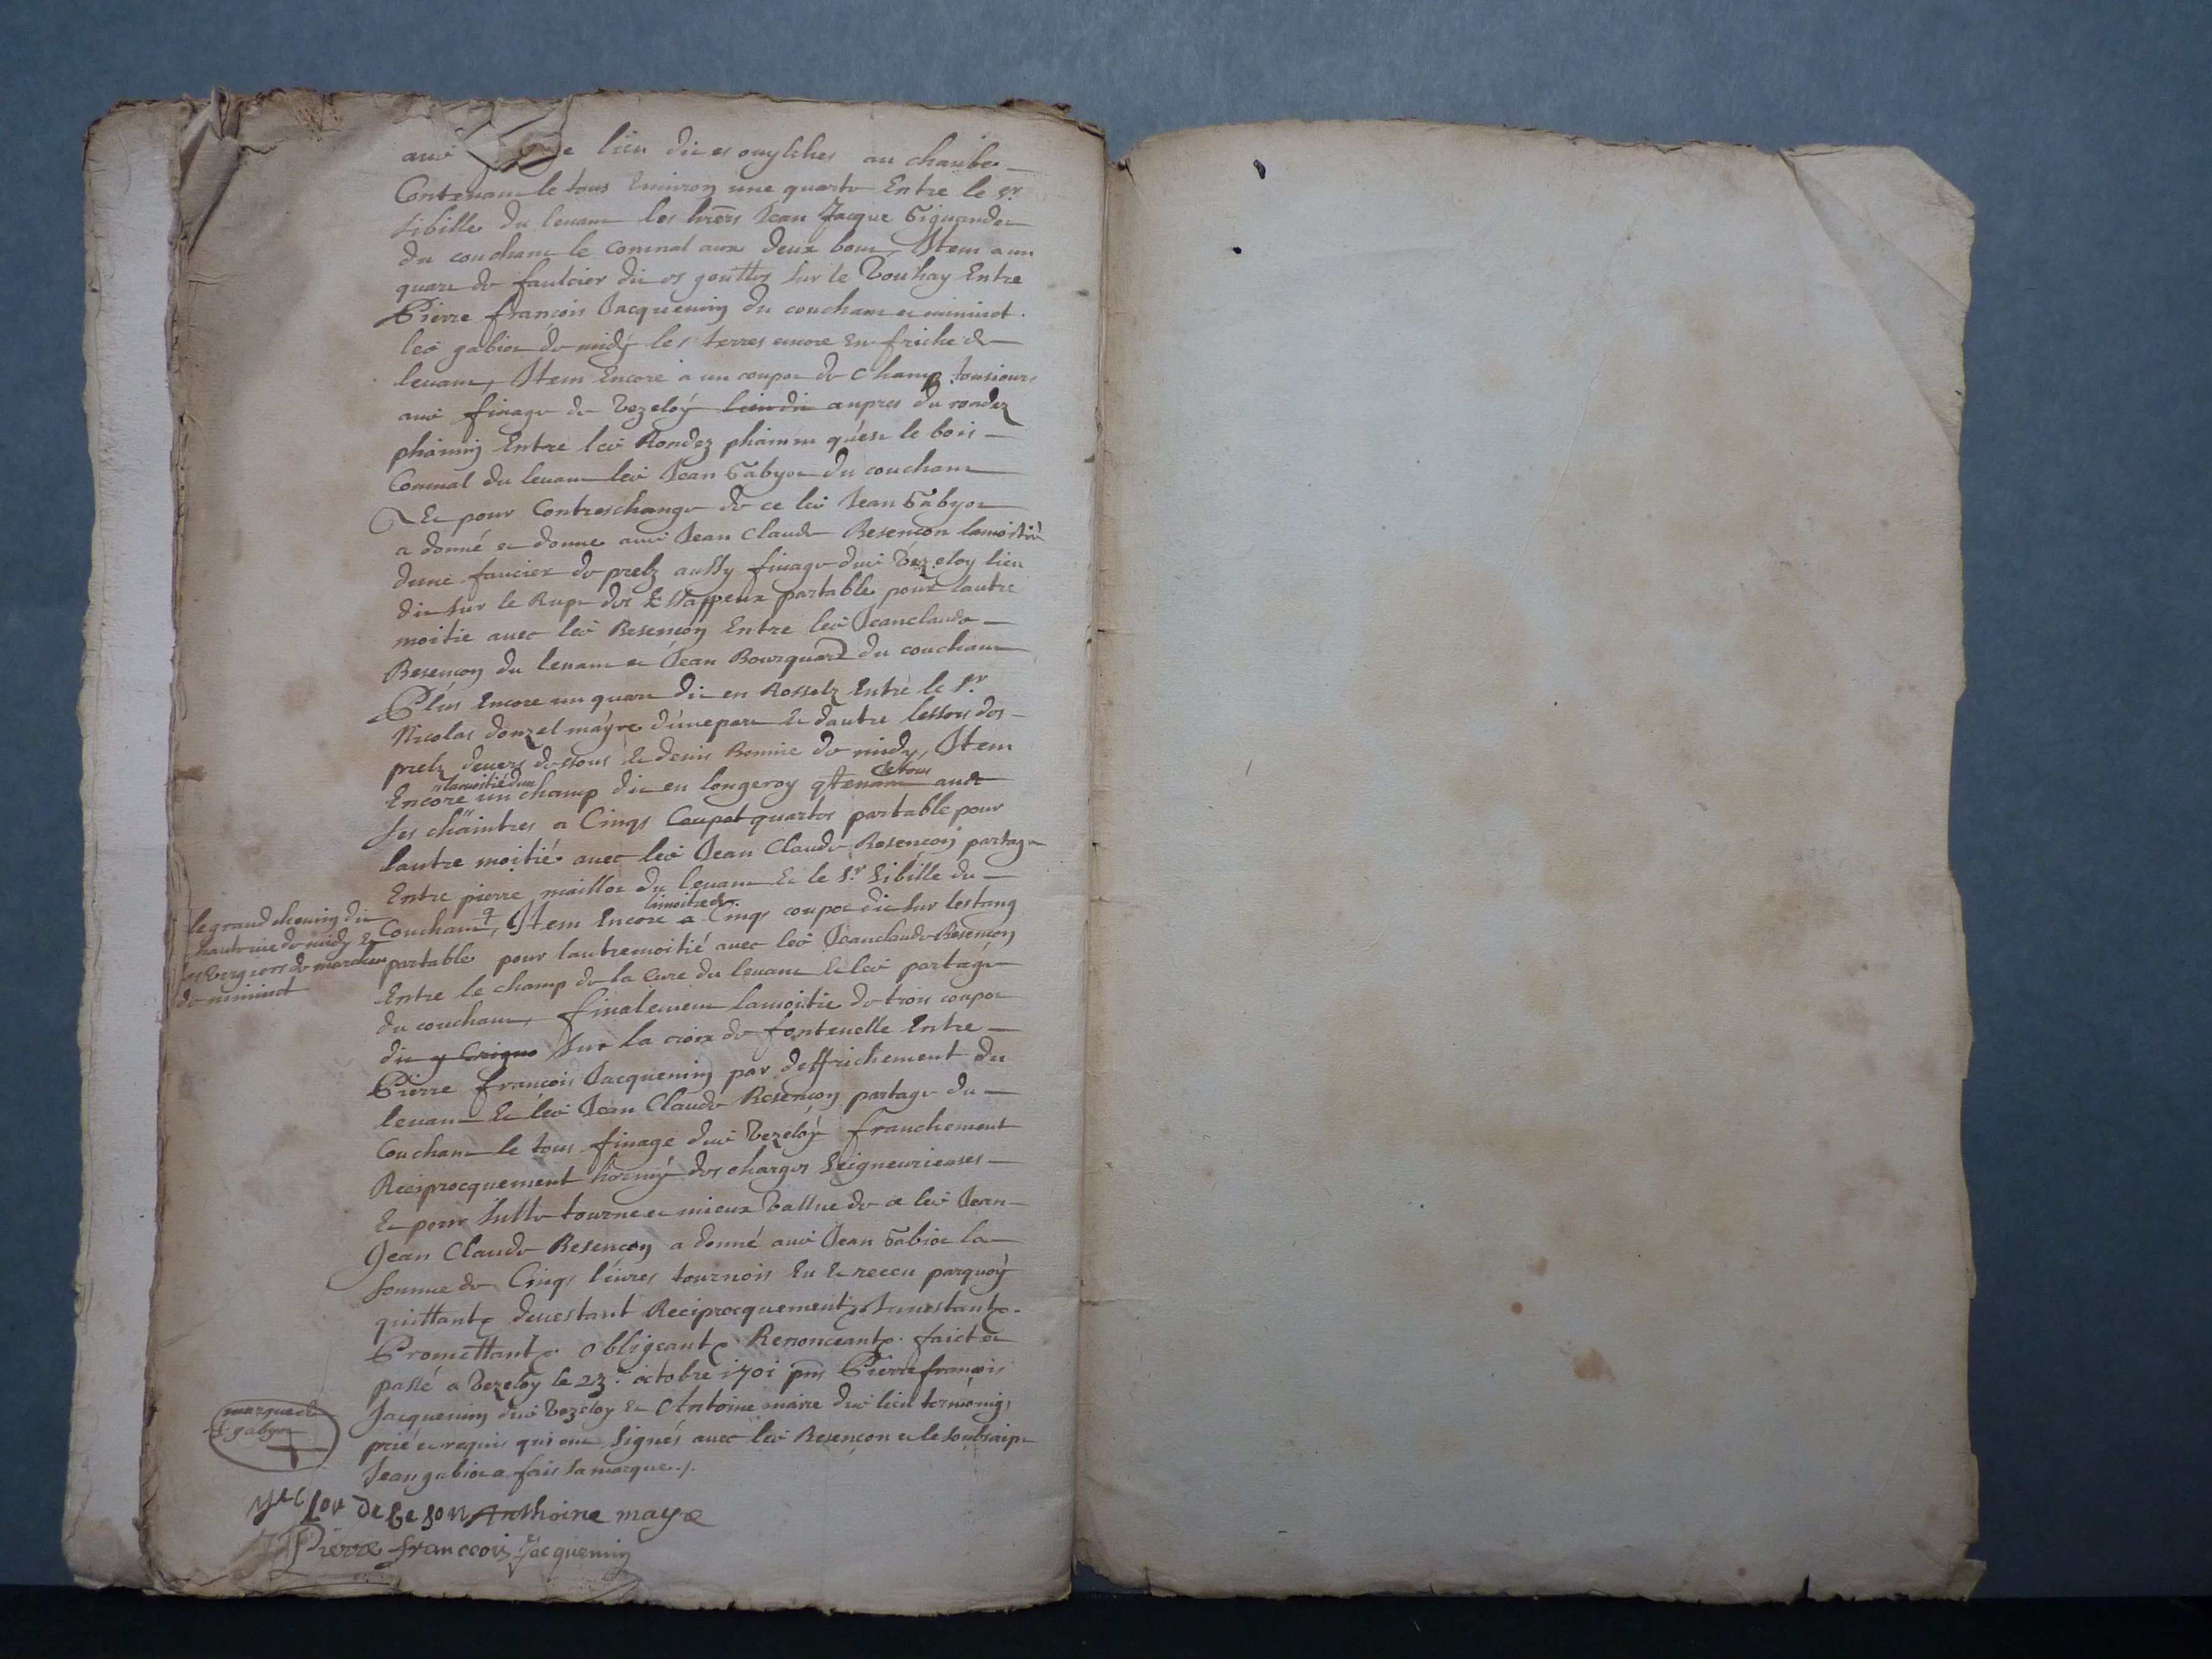 lieu dit es ouylches au chambe
Contenant le tous Environ une quarte Entre le Sr.
Sibille du levant les hrers Jean Jacque Siguander
du couchant le Commal aux deux bout, Item a un
quart de faulcier dit es gouttes sur le Touhay Entre
Pierre françois Jacquemin du couchant et minuict.
led gabiot de midy les terres encore en friche de
levant, Item Encore a un coupot de Champ tousiours
aud finage de Vezeloy lieu dit aupres du rondez
phainin Entre led Rondez phainin qu'est le bois
Commal du levant led Jean Gabyot du couchant
Et pour Contreschange de ce led Jean Gabyot
a donné et donne aud Jean Claude Besençon lamoitié
dune faucier de prelz aussy finage dud Vezeloy lieu
dit sur le Rupt des Essappeux partable pour lautre
moitie avec led Besençon Entre led Jeanclaude
Besençon du levant et Jean Bourquard du couchant
Plus Encore un quart dit en Rosselz Entre le Sr.
Nicolas donzel mayre dunepart et dautre lessors des
prelz devers dessous et denis Bonnie de midy, Item
lamoitié dun le tous
Encore un champ dit en longeroy qtenant avec
ses chaintres a Cinqs Coupot quartes partable pour
lautre moitié avec led Jean Claude Besençon partage
Entre pierre maillot du levant et le Sr Sibille du
lamoitie de
Couchant, Item Encore a Cinqs coupot dit sur lestang
le grand chemin dit
hautevue de midy et
les vergiers de marchau
de minuict
partable pour lautremoitié avec led Jeanclaude Besençon
Entre le champ de la Cure du levant et led partage
du couchant, finalement lamoitie de trois coupot
dit sur la croix de fontenelle Entre
Pierre françois Jacquemin par deffrichement du
levant et led Jean Claude Besençon partage du
Couchant le tous finage dud Vezeloy franchement
Reciprocquement hormy des charges seigneurieuses
Et pour sulte tourne et mieux vallue de ce led Jean
Jean Claude Besençon a donné aud Jean Gabiot la
somme de Cinqs livres tournois Eu et receu parquoy
quittant devestant Reciprocquement Investant.
Promettant. obligeant. Renonceant. faict et
passé a Vezeloy le 23e octobre 1701 pnt Pierre françois
Jacquemin dud Vezeloy et Antoine maire dud lieu
prié et requis qui ont signés avec led Besençon et le soubscript
Jean gabiot a fait sa marque./.
marque de
J gabyot
de beson Anthoine mayre
Pierre franccois Jacquemin